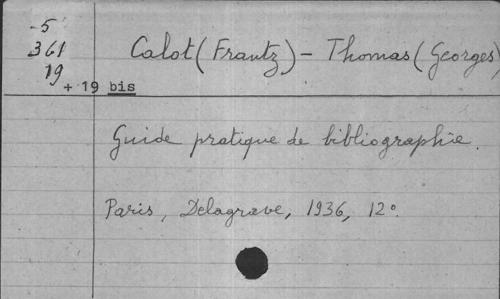 -5
361
19
+ 19 bis
Calot (Frantz) - Thomas (Georges)
Guide pratique de bibliographie.
Paris, Delagrave, 1936, 12°.